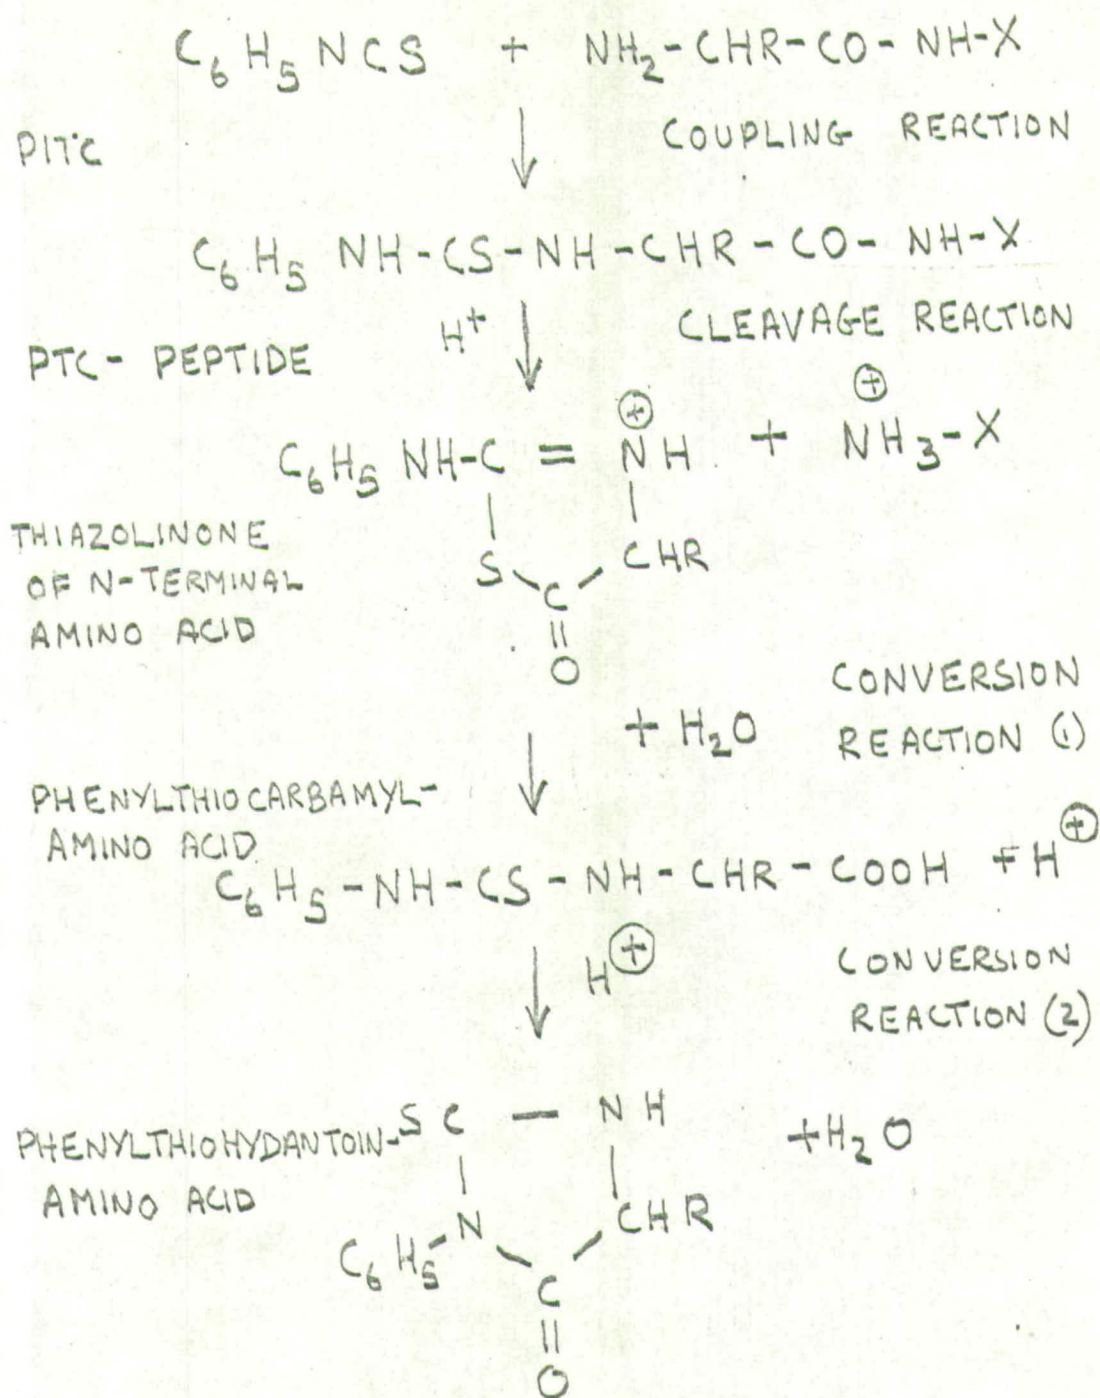 C₆H₅NCS + NH₂-CHR-CO-NH-X
PITC
COUPLING REACTION
C₆H₅ NH-CS-NH-CHR-CO-NH-X
H⁺
CLEAVAGE REACTION
PTC- PEPTIDE
⊕ ⊕
C₆H₅ NH-C = NH + NH₃-X
THIAZOLINONE
OF N-TERMINAL
AMINO ACID
S C CHR
O
+ H₂O
CONVERSION
REACTION (1)
PHENYLTHIOCARBAMYL-
AMINO ACID
C₆H₅-NH-CS-NH-CHR-COOH + H⊕
H⊕
CONVERSION
REACTION (2)
PHENYLTHIOHYDANTOIN-
AMINO ACID
SC — NH + H₂O
C₆H₅-N CHR
C
O